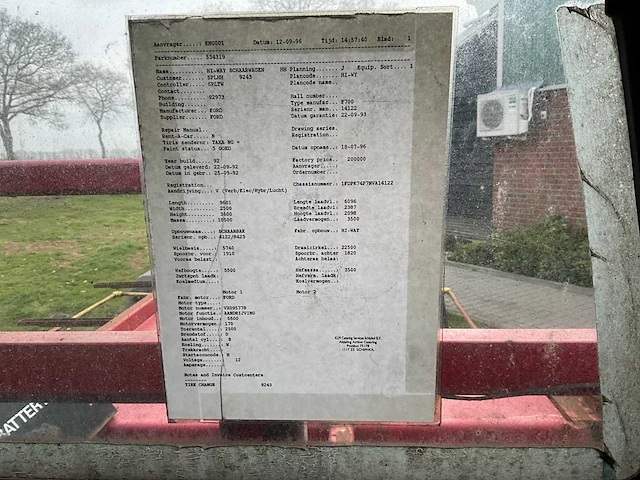 Aanvrager.....: EHO001 Datum: 12-09-96 Tijd: 14:57:40 Blad: 1
Parknummer....: 554319
Naam..........: HI-WAY SCHAARWAGEN HH Planning.: J Equip. Sort.. 1
Customer......: SPLHH 9243 Plancode.....: HI-WY
Controller....: SPLTW Plancode naam..:
Contact.......:
Phone.........: 92973 Hall nummer....:
Building......: Type manufac..: F700
Manufacturer..: FORD Serienr. man..: 14122
Supplier......: FORD Datum garantie: 22-09-93
Repair Manual.: Drawing series.
Rent-A-Car....: N Registration..:
Tiris zendernr: TAXA NO =
Paint status..: 5 GOED Datum opname..: 18-07-96
Year build....: 92 Factory price.: 200000
Datum geleverd: 22-09-92 Aanvragernr...:
Datum in gebr.: 25-09-92 Ordernummer...:
Registration..: Chassisnummer.: 1FDPK74P7NVA14122
Aandrijving...: V (Verb/Elec/Hybr/Lucht)
Length........: 9601 Lengte laadvl.: 6096
Width.........: 2500 Breedte laadvl: 2387
Height........: 3600 Hoogte laadvl.: 2098
Massa.........: 10500 Laadvermogen..: 3500
Opbouwnaam....: SCHAARBAK Fabr. opbouw..: HI-WAY
Serienr. opb..: 4122/8423
Wielbasis.....: 5740 Draaicirkel...: 22500
Spoorbr. voor.: 1910 Spoorbr. achter 1820
Vooras belast.: Achteras belas:
Hefhoogte.....: 5500 Hefmassa......: 3500
Zwrtepnt laadk: Hefverm. laadk:
Koelmedium....: Koelvermogen..:
Motor 1 Motor 2
Fabr. motor...: FORD
Motor type....:
Motor nummer..: VH095778
Motor functie.: AANDRIJVING
Motor inhoud..: 6600
Motorvermogen : 170
Toerental.....: 2500
Brandstof.....: D
Aantal cyl....: 6
Koeling.......: W
Trekkracht....:
Startaccucode.: H
Voltage.......: 12
Amperage......:
KLM Catering Services Schiphol B.V.
Notes and Invoice Costcenters
TIRE CHANGE 9243
BATTER